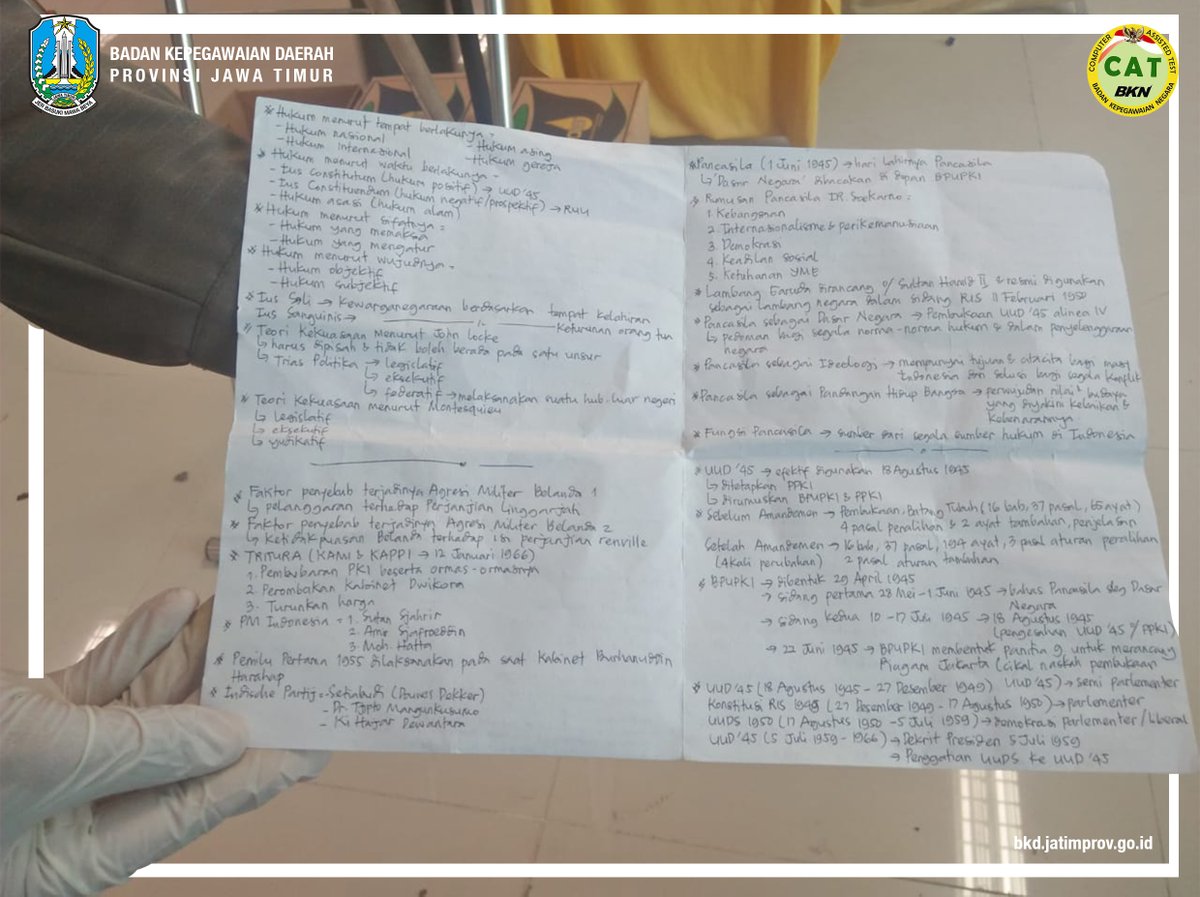 BADAN KEPEGAWAIAN DAERAH
PROVINSI JAWA TIMUR
JER BASUKI MAWA BEYA
COMPUTER ASSISTED TEST
CAT
BKN
BADAN KEPEGAWAIAN NEGARA
* Hukum menurut tempat berlakunya =
- Hukum nasional - Hukum asing
- Hukum Internasional - Hukum gereja
* Hukum menurut waktu berlakunya -
- Ius constitutum (hukum positif) → UUD '45
- Ius Constituendum (hukum negatif/prospektif) → RUU
- Hukum asasi (hukum alam)
* Hukum menurut sifatnya =
- Hukum yang memaksa
- Hukum yang mengatur
* Hukum menurut wujudnya -
- Hukum objektif
- Hukum subjektif
* Ius Soli → kewarganegaraan berdasarkan tempat kelahiran
Ius Sanguinis → keturunan orang tua
* Teori Kekuasaan menurut John Locke
↳ harus dipisah & tidak boleh berada pada satu unsur
↳ Trias Politika → legislatif
↳ eksekutif
↳ federatif → melaksanakan suatu hub. luar negeri
* Teori Kekuasaan menurut Montesquieu
↳ legislatif
↳ eksekutif
↳ yudikatif
* Faktor penyebab terjadinya Agresi Militer Belanda 1
↳ pelanggaran terhadap Perjanjian Linggarjati
* Faktor penyebab terjadinya Agresi Militer Belanda 2
↳ ketidakpuasan Belanda terhadap isi perjanjian renville
* TRITURA (KAMI & KAPPI → 12 Januari 1966)
1. Pembubaran PKI beserta ormas-ormasnya
2. Perombakan Kabinet Dwikora
3. Turunkan harga
* PM Indonesia = 1. Sutan Sjahrir
2. Amir Sjafroeddin
3. Moh. Hatta
* Pemilu Pertama 1955 dilaksanakan pada saat kabinet Burhanuddin
Harahap
* Indische Partij - Setiabudi (Douwes Dekker)
- Dr. Tjipto Mangunkusumo
- Ki Hajar Dewantara
* Pancasila (1 Juni 1945) → hari lahirnya Pancasila
↳ 'Dasar Negara' dibacakan di depan BPUPKI
* Rumusan Pancasila DR. Soekarno =
1. Kebangsaan
2. Internasionalisme & perikemanusiaan
3. Demokrasi
4. Keadilan sosial
5. Ketuhanan YME
* Lambang Garuda dirancang o/ Sultan Hamid II & resmi digunakan
sebagai lambang negara dalam sidang RIS 11 Februari 1950
* Pancasila sebagai Dasar Negara → Pembukaan UUD '45 alinea IV
↳ pedoman bagi segala norma-norma hukum & dalam penyelenggaraan
negara
* Pancasila sebagai Ideologi → mempunyai tujuan & citacita bagi masy
Indonesia dan solusi bagi segala konflik
* Pancasila sebagai Pandangan Hidup Bangsa → perwujudan nilai² budaya
yang diyakini kebaikan &
kebenarannya
* Fungsi Pancasila → sumber dari segala sumber hukum di Indonesia
* UUD '45 → efektif digunakan 18 Agustus 1945
↳ ditetapkan PPKI
↳ dirumuskan BPUPKI & PPKI
* Sebelum Amandemen → Pembukaan, Batang Tubuh (16 bab, 37 pasal, 65 ayat)
4 pasal peralihan & 2 ayat tambahan, penjelasan
Setelah Amandemen → 16 bab, 37 pasal, 194 ayat, 3 pasal aturan peralihan
(4 kali perubahan) 2 pasal aturan tambahan
* BPUPKI → dibentuk 29 April 1945
→ sidang pertama 28 Mei - 1 Juni 1945 → bahas Pancasila sbg Dasar
Negara
→ sidang kedua 10 - 17 Juli 1945 → 18 Agustus 1945
(pengesahan UUD '45 o/ PPKI)
→ 22 Juni 1945 → BPUPKI membentuk panitia 9 untuk merancang
Piagam Jakarta (cikal naskah pembukaan
UUD '45)
* UUD '45 (18 Agustus 1945 - 27 Desember 1949) → semi parlementer
Konstitusi RIS 1949 (27 Desember 1949 - 17 Agustus 1950) → parlementer
UUDS 1950 (17 Agustus 1950 - 5 Juli 1959) → demokrasi parlementer/liberal
UUD '45 (5 Juli 1959 - 1966) → Dekrit Presiden 5 Juli 1959
→ Penggatian UUDS ke UUD '45
bkd.jatimprov.go.id